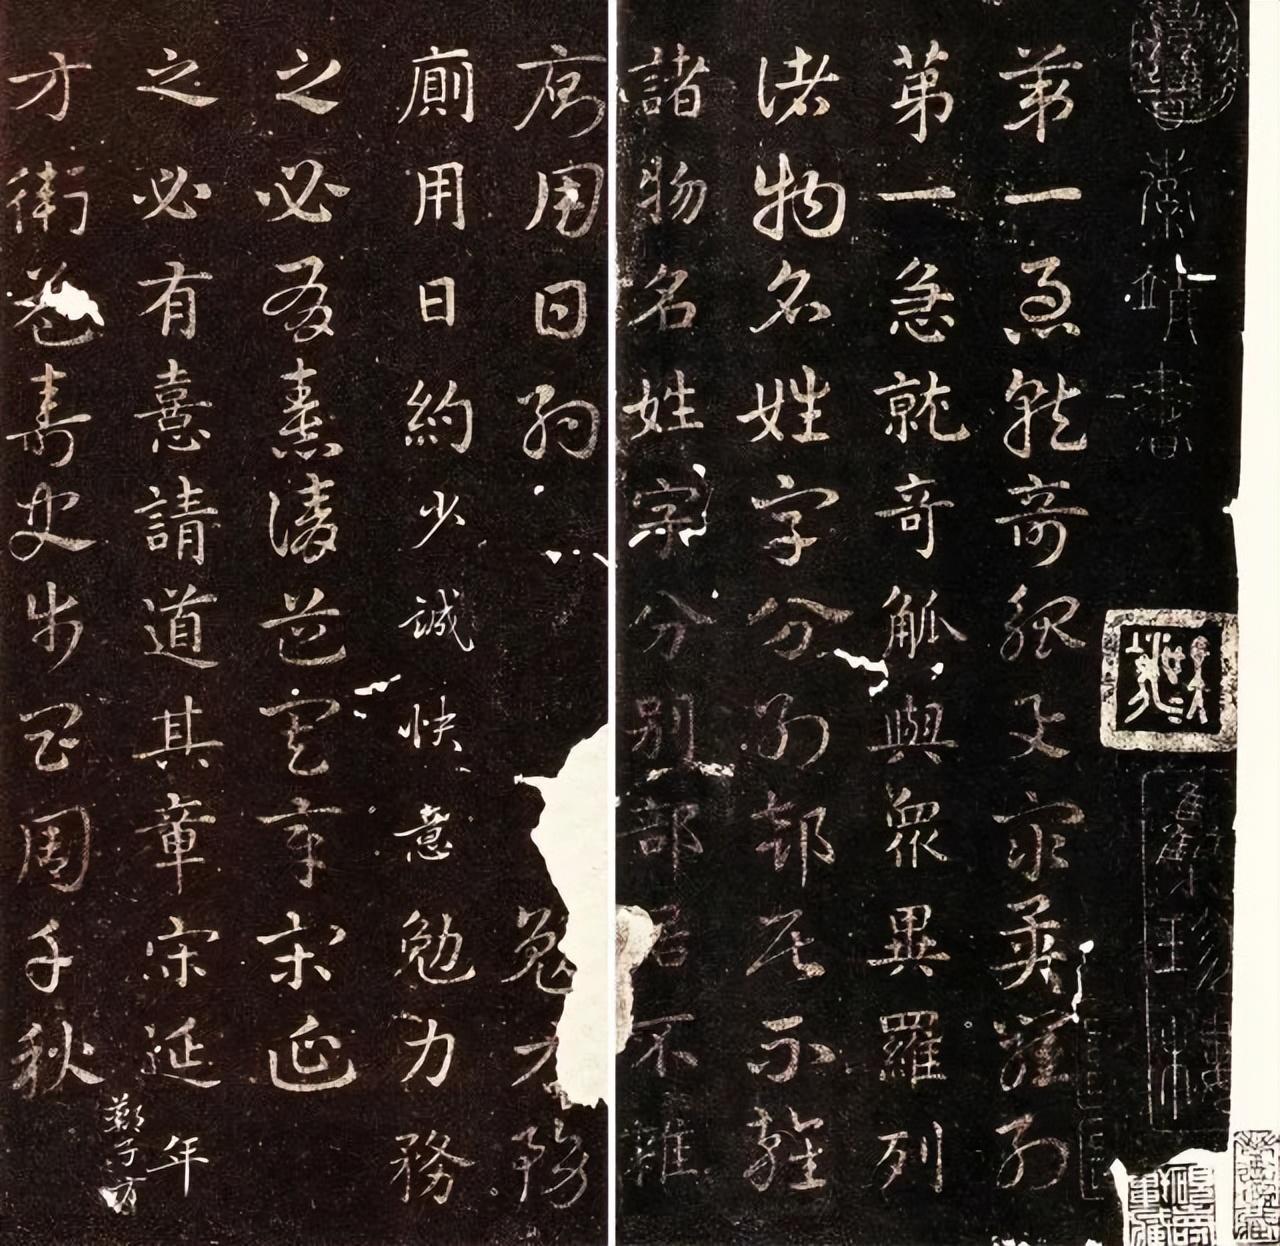 第一急就奇觚與衆異羅列
第一急就奇觚與衆異羅列
諸物名姓字分別部居不雜
諸物名姓字分別部居不雜
廁用日約勉力務
廁用日約少誠快意勉力務
之必有憙請道其章宋延
之必有憙請道其章宋延年
鄭子方
方衛益壽史步昌周千秋